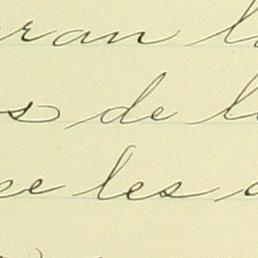 ran l
s de l
ce les